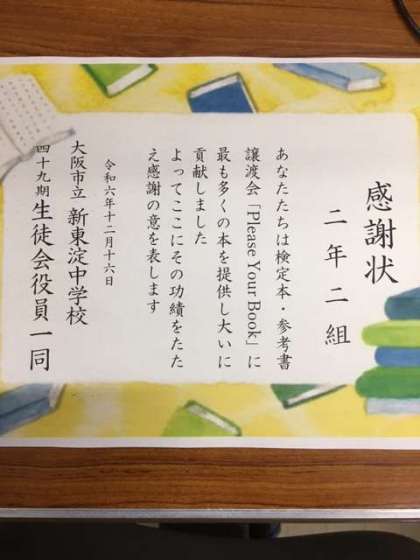 感謝状
二年二組
あなたたちは検定本・参考書
譲渡会「Please Your Book」に
最も多くの本を提供し大いに
貢献しました
よってここにその功績をたた
え感謝の意を表します
令和六年十二月十六日
大阪市立 新東淀中学校
四十九期生徒会役員一同